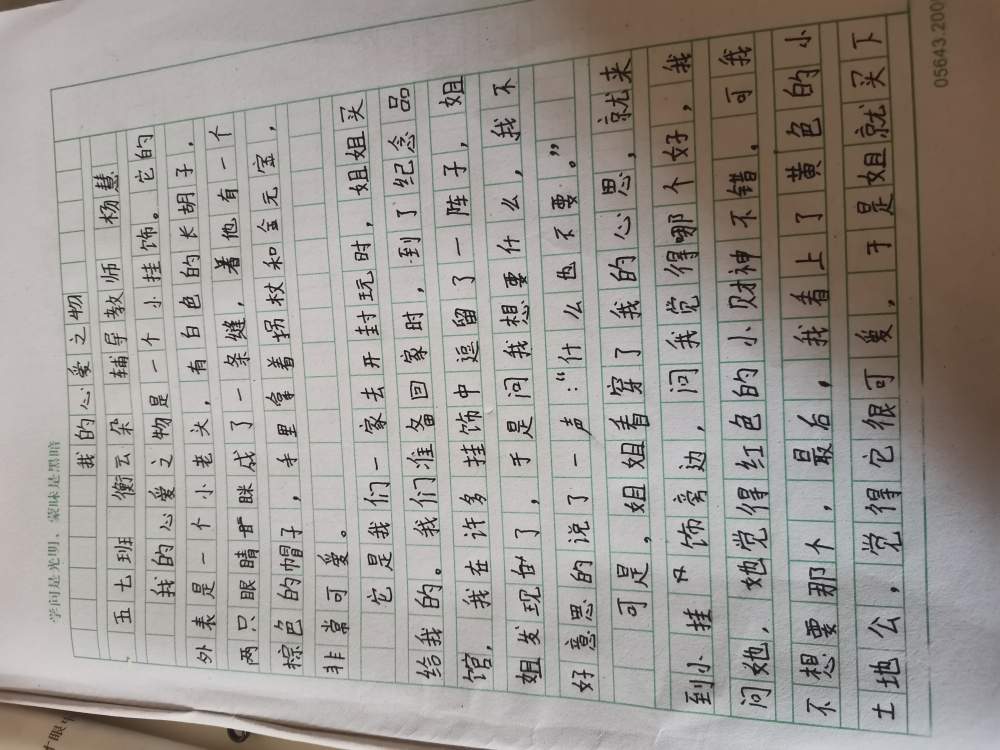 学问是光明，蒙昧是黑暗
我的心爱之物
五七班 衡云朵 辅导教师 杨慧
我的心爱之物是一个小挂饰。它的
外表是一个小老头，有白色的长胡子，
两只眼睛眯成了一条缝，着他有一个
棕色的帽子，手里拿着拐杖和金元宝，
非常可爱。
它是我们一家去开封玩时，姐姐买
给我的。我们准备回家时，到了纪念品
馆，我在许多挂饰中逗留了一阵子，姐
姐发现了，于是问我想要什么，我不
好意思的说了一声：“什么也不要。”
可是，姐姐看穿了我的心思，就来
到小挂饰旁边，问我觉得哪个好，我
问她，她觉得红色的小财神不错，可我
不想要那个，最后，我看上了黄色的小
土地公，觉得它很可爱，于是姐就买下
05643.200
眼